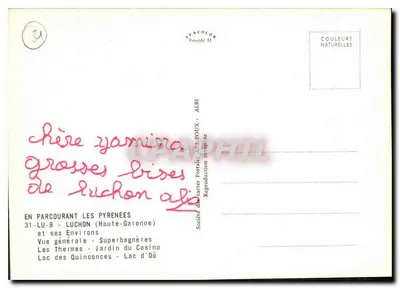 31
SPACOLOR
Procédé II
COULEURS
NATURELLES
chère yamina
grosses bises
de luchon
EN PARCOURANT LES PYRENEES
31-LU-8 - LUCHON (Haute-Garonne)
et ses Environs
Vue générale - Superbagnères
Les Thermes - Jardin du Casino
Lac des Quinconces - Lac d'Oô
Société des cartes Postales APA-POUX - ALBI
Reproduction interdite
CPAPHIL